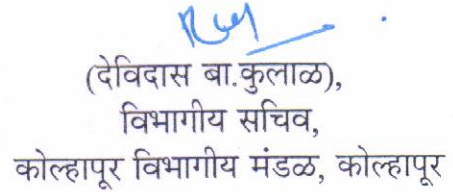 (देविदास बा.कुलाळ),
विभागीय सचिव,
कोल्हापूर विभागीय मंडळ, कोल्हापूर